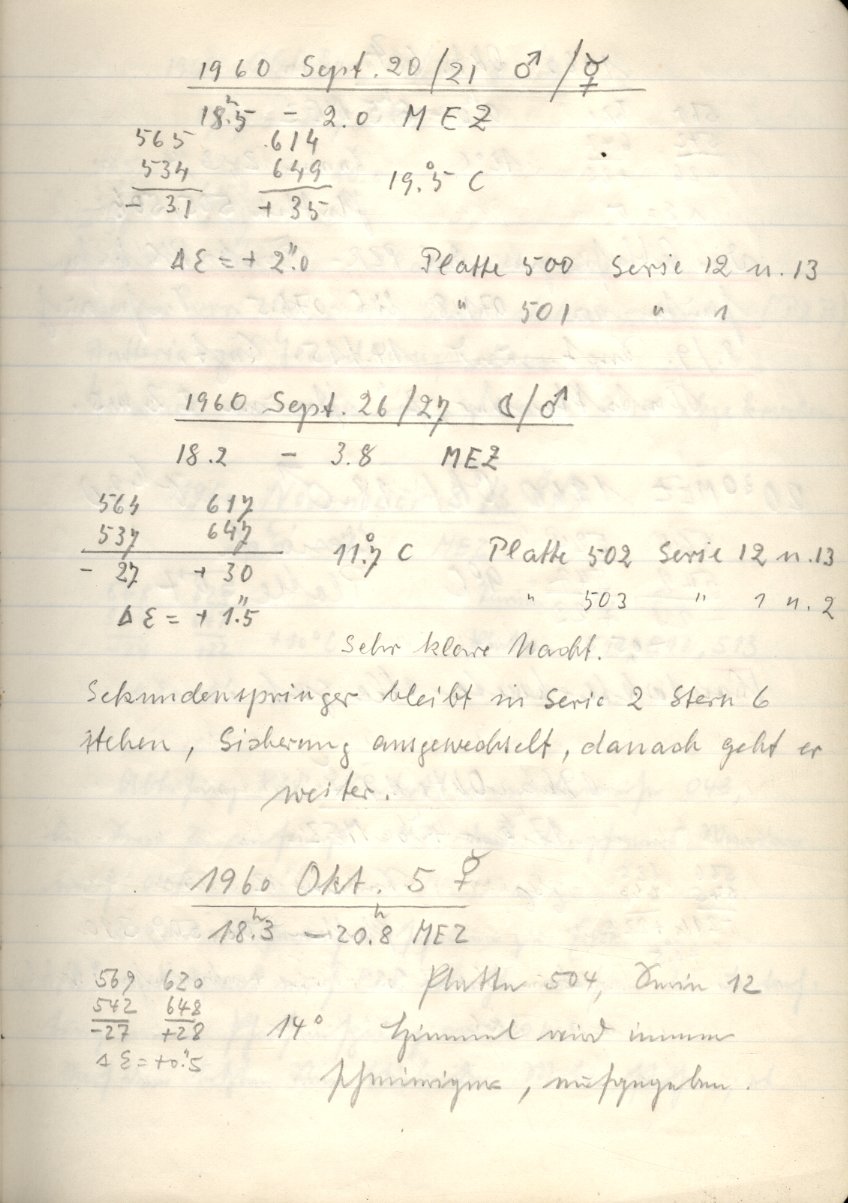 1960 Sept. 20/21 ♂/☿
18ʰ.5 – 2.0 MEZ
565 614
534 649 19.°5 C
– 31 + 35
Δ Ɛ = + 2.″0 Platte 500 Serie 12 u. 13
" 501 " 1
1960 Sept. 26/27 ☾/♂
18.2 – 3.8 MEZ
564 617
537 647 11.°7 C Platte 502 Serie 12 u. 13
– 27 + 30
" 503 " 1 u. 2
Δ Ɛ = + 1.″5
Sehr klare Nacht.
Sekundenspringer bleibt in Serie 2 Stern 6
stehen, Sicherung ausgewechselt, danach geht er
weiter.
1960 Okt. 5 ☿
18ʰ.3 – 20ʰ.8 MEZ
569 620 Platte 504, Serie 12
542 648
–27 +28 14° Himmel wird immer
Δ Ɛ = +0.″5
schmieriger, aufgegeben.